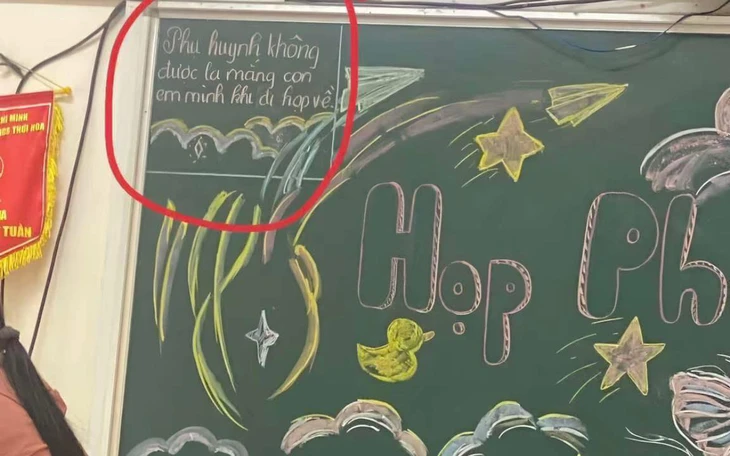 Phụ huynh không
được la mắng con
em mình khi đi họp về.
Họp Ph
CHÍ MINH
THCS THỚI HÒA
TUẦN